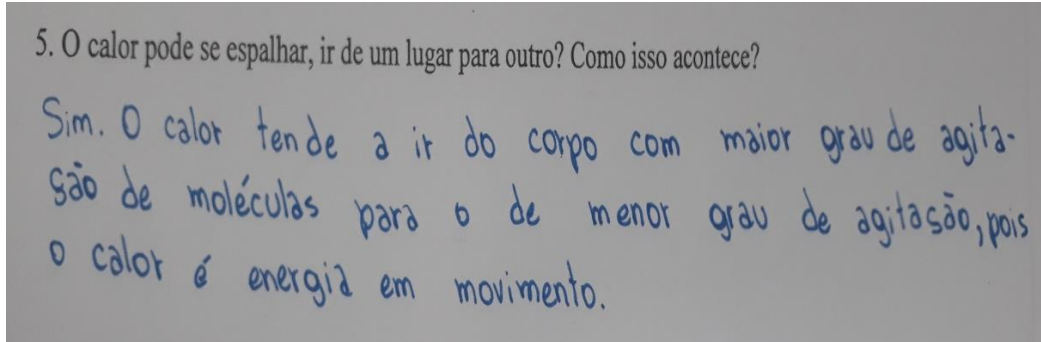 5. O calor pode se espalhar, ir de um lugar para outro? Como isso acontece?
Sim. O calor tende a ir do corpo com maior grau de agita-
são de moléculas para o de menor grau de agitasão, pois
o calor é energia em movimento.